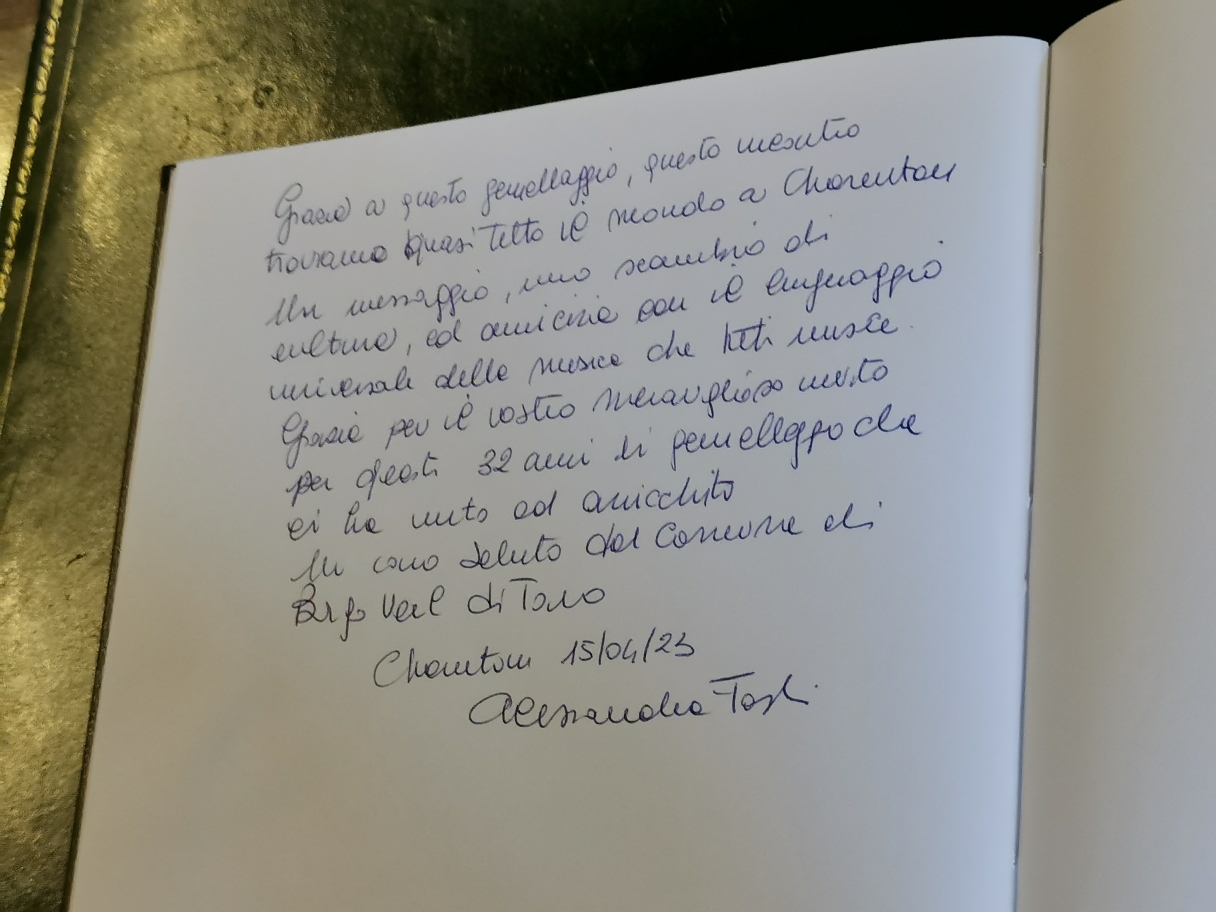 Grazie a questo gemellaggio, questo incontro
troviamo quasi tutto il mondo a Charenton
Un messaggio, uno scambio di
cultura, ed amicizia con il linguaggio
universale della musica che tutti unisce.
Grazie per il vostro meraviglioso invito
per questi 32 anni di gemellaggio che
ci ha unito ed arricchito
Un caro saluto dal Comune di
Borgo Val di Taro
Charenton 15/04/23
Alessandra